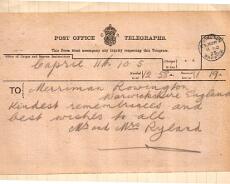 POST OFFICE TELEGRAPHS.
This Form must accompany any inquiry respecting this Telegram.
Office of Origin and Service Instructions.
Capril 11th 10 5
12 58
11 19
TO
Merriman Rowington
Warwickshire England
Kindest remembrances and
best wishes to all
Mr and Mrs Ryland